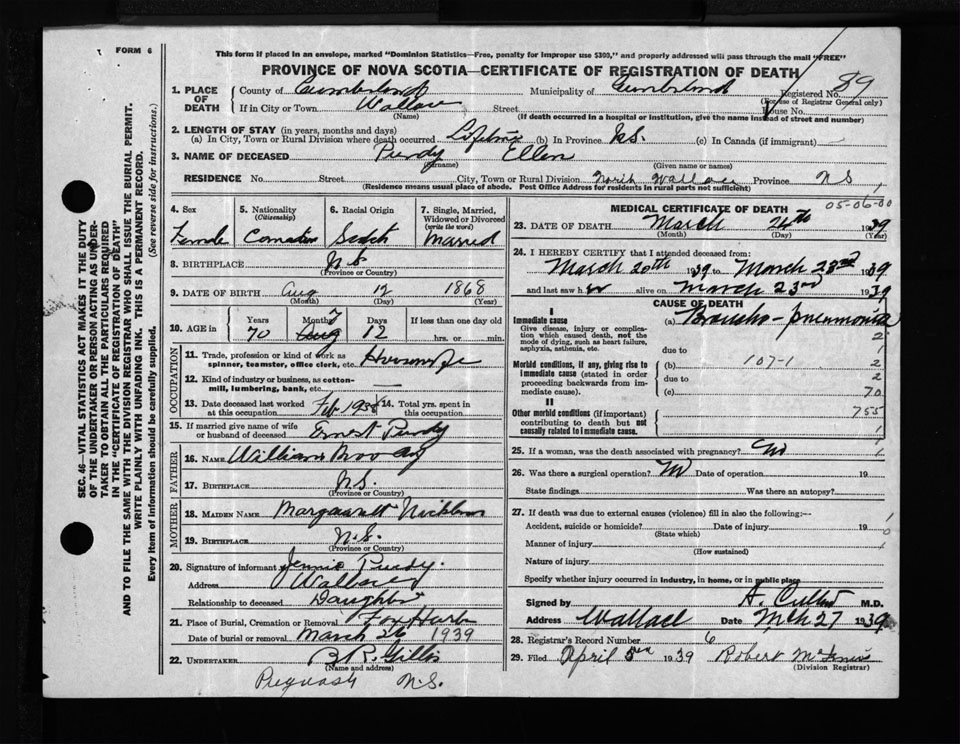 FORM 6
This form if placed in an envelope, marked "Dominion Statistics—Free, penalty for improper use $300," and properly addressed will pass through the mail "FREE"
PROVINCE OF NOVA SCOTIA—CERTIFICATE OF REGISTRATION OF DEATH
1. PLACE OF DEATH County of Cumberland Municipality of Cumberland Registered No. 89
(For use of Registrar General only)
If in City or Town Wallace Street House No.
(Name) (If death occurred in a hospital or institution, give the name instead of street and number)
2. LENGTH OF STAY (in years, months and days)
(a) In City, Town or Rural Division where death occurred Lifetime (b) In Province N.S. (c) In Canada (if immigrant) —
3. NAME OF DECEASED Purdy Ellen
(Surname) (Given name or names)
RESIDENCE No. Street City, Town or Rural Division North Wallace Province N S
(Residence means usual place of abode. Post Office Address for residents in rural parts not sufficient)
4. Sex Female
5. Nationality (Citizenship) Canadian
6. Racial Origin Scotch
7. Single, Married, Widowed or Divorced (write the word) Married
8. BIRTHPLACE N.S
(Province or Country)
9. DATE OF BIRTH Aug 12 1868
(Month) (Day) (Year)
10. AGE in Years Months Days If less than one day old
70 7 12 hrs. or min.
OCCUPATION
11. Trade, profession or kind of work as spinner, teamster, office clerk, etc. Housewife
12. Kind of industry or business, as cotton-mill, lumbering, bank, etc. —
13. Date deceased last worked at this occupation Feb 1938 14. Total yrs. spent in this occupation
15. If married give name of wife or husband of deceased Ernest Purdy
FATHER
16. NAME William
17. BIRTHPLACE N.S.
(Province or Country)
MOTHER
18. MAIDEN NAME Margaret
19. BIRTHPLACE N.S.
(Province or Country)
20. Signature of informant Jennie Purdy
Address Wallace
Relationship to deceased Daughter
21. Place of Burial, Cremation or Removal Fox Harbr
Date of burial or removal March 26 1939
22. UNDERTAKER B R Gillis
(Name and address)
Pugwash N.S.
05-06-00
MEDICAL CERTIFICATE OF DEATH
23. DATE OF DEATH March 24th 1939
(Month) (Day) (Year)
24. I HEREBY CERTIFY that I attended deceased from:
March 20th 1939 to March 23rd 1939
and last saw h er alive on March 23rd 1939
CAUSE OF DEATH
I
Immediate cause (a) Broncho-pneumonia
Give disease, injury or complication which caused death, not the mode of dying, such as heart failure, asphyxia, asthenia, etc.
due to
Morbid conditions, if any, giving rise to immediate cause (stated in order proceeding backwards from immediate cause).
(b) 107-1
due to
(c)
2
1
2
2
70
II
Other morbid conditions (if important) contributing to death but not causally related to immediate cause.
755
1
25. If a woman, was the death associated with pregnancy? No
26. Was there a surgical operation? No Date of operation 19
State findings Was there an autopsy?
27. If death was due to external causes (violence) fill in also the following:—
Accident, suicide or homicide? Date of injury 19
(State which)
Manner of injury
(How sustained)
Nature of injury
Specify whether injury occurred in industry, in home, or in public place
Signed by M.D.
Address Wallace Date Mch 27 1939
28. Registrar's Record Number 6
29. Filed April 5th 1939 Robert
(Division Registrar)
SEC. 46—VITAL STATISTICS ACT MAKES IT THE DUTY
OF THE UNDERTAKER OR PERSON ACTING AS UNDER-
TAKER TO OBTAIN ALL THE PARTICULARS REQUIRED
IN THE "CERTIFICATE OF REGISTRATION OF DEATH"
AND TO FILE THE SAME WITH THE DIVISION REGISTRAR WHO SHALL ISSUE THE BURIAL PERMIT.
WRITE PLAINLY WITH UNFADING INK. THIS IS A PERMANENT RECORD.
Every item of information should be carefully supplied. (See reverse side for instructions.)